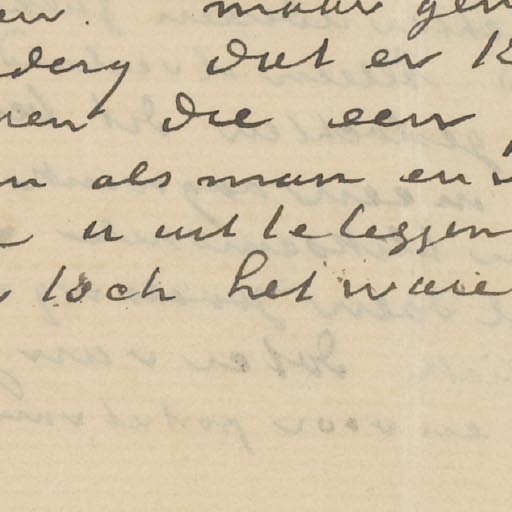 maar gen
derg dat er 12
ren die een
als man en
u uit te leggen
toch het ware